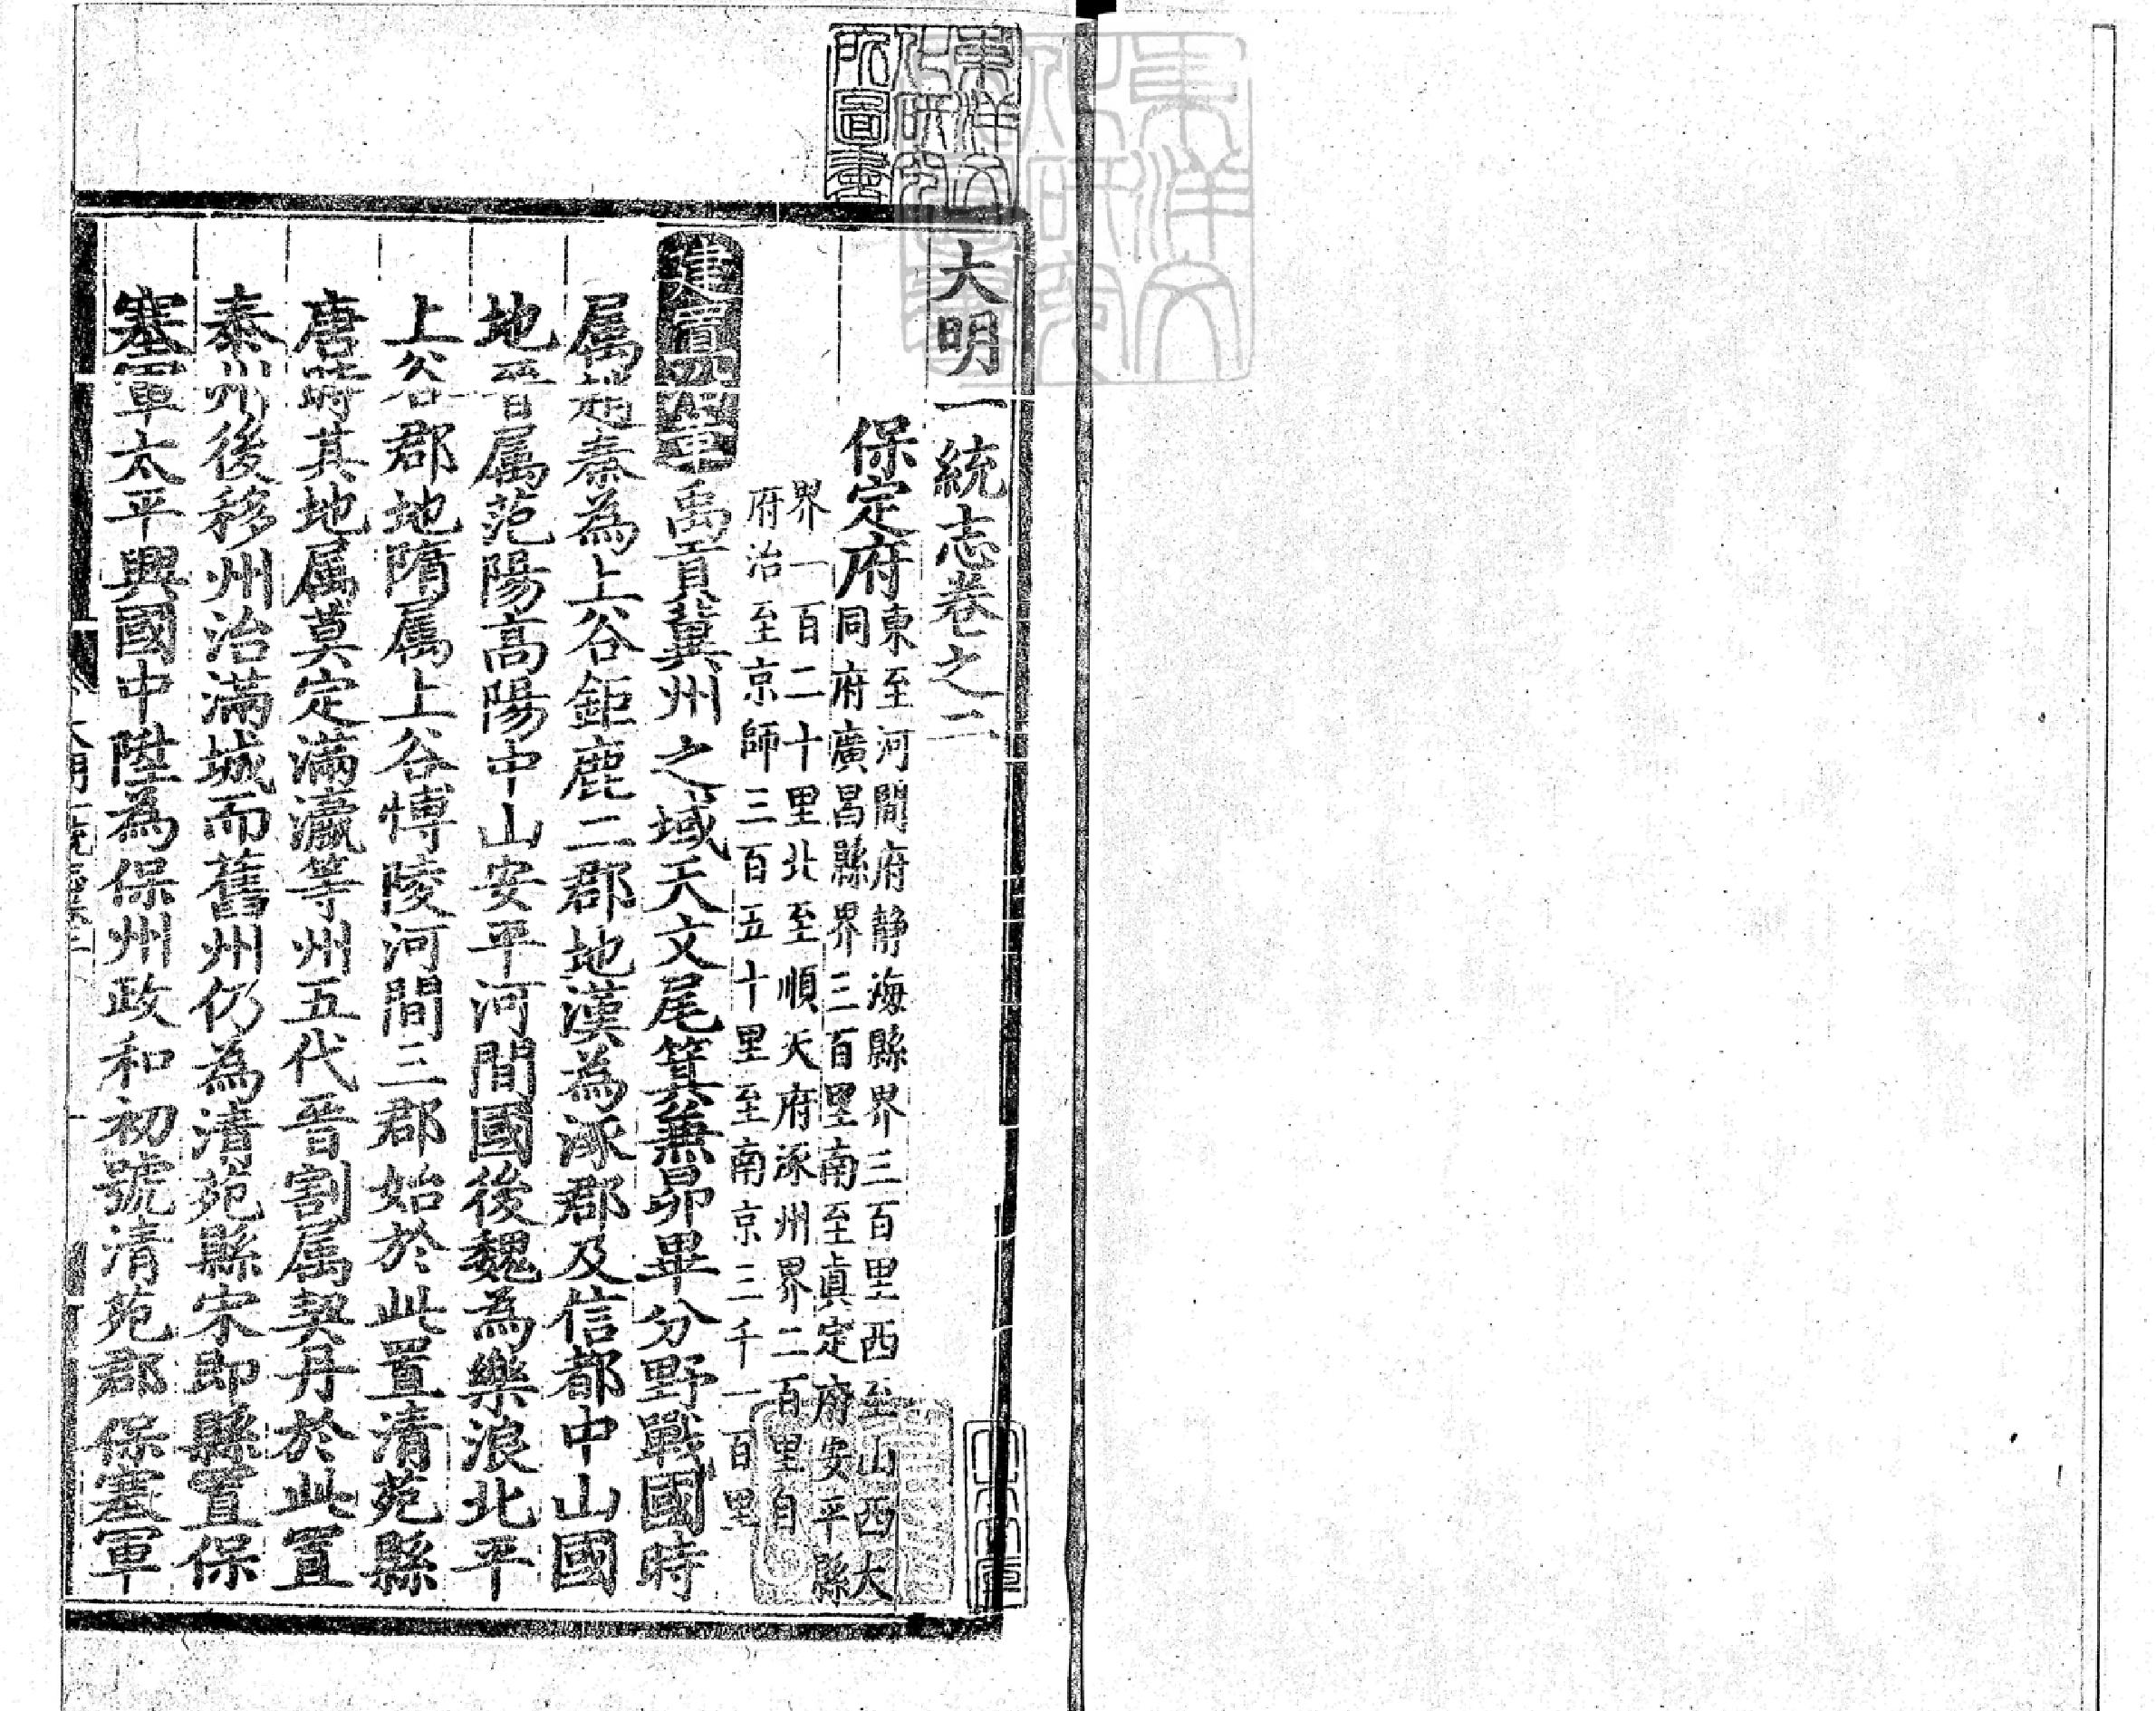 大明一統志卷之二
保定府東至河間府静海縣界三百里西至山西大
同府廣昌縣界三百里南至真定府安平縣
界一百二十里北至順天府涿州界二百里自
府治至京師三百五十里至南京三千一百里
建置沿革禹貢冀州之域天文尾箕兼昴畢分野戰國時
屬趙秦為上谷鉅鹿二郡地漢為涿郡及信都中山國
地晉屬范陽高陽中山安平河間國後魏為樂浪北平
上谷郡地隋屬上谷博陵河間三郡始於此置清苑縣
唐時其地屬莫定滿瀛等州五代晉割屬契丹於此置
泰州後移州治滿城而舊州仍為清苑縣宋即縣置保
塞軍太平興國中陞為保州政和初號清苑郡保塞軍
東洋文化研究所圖書